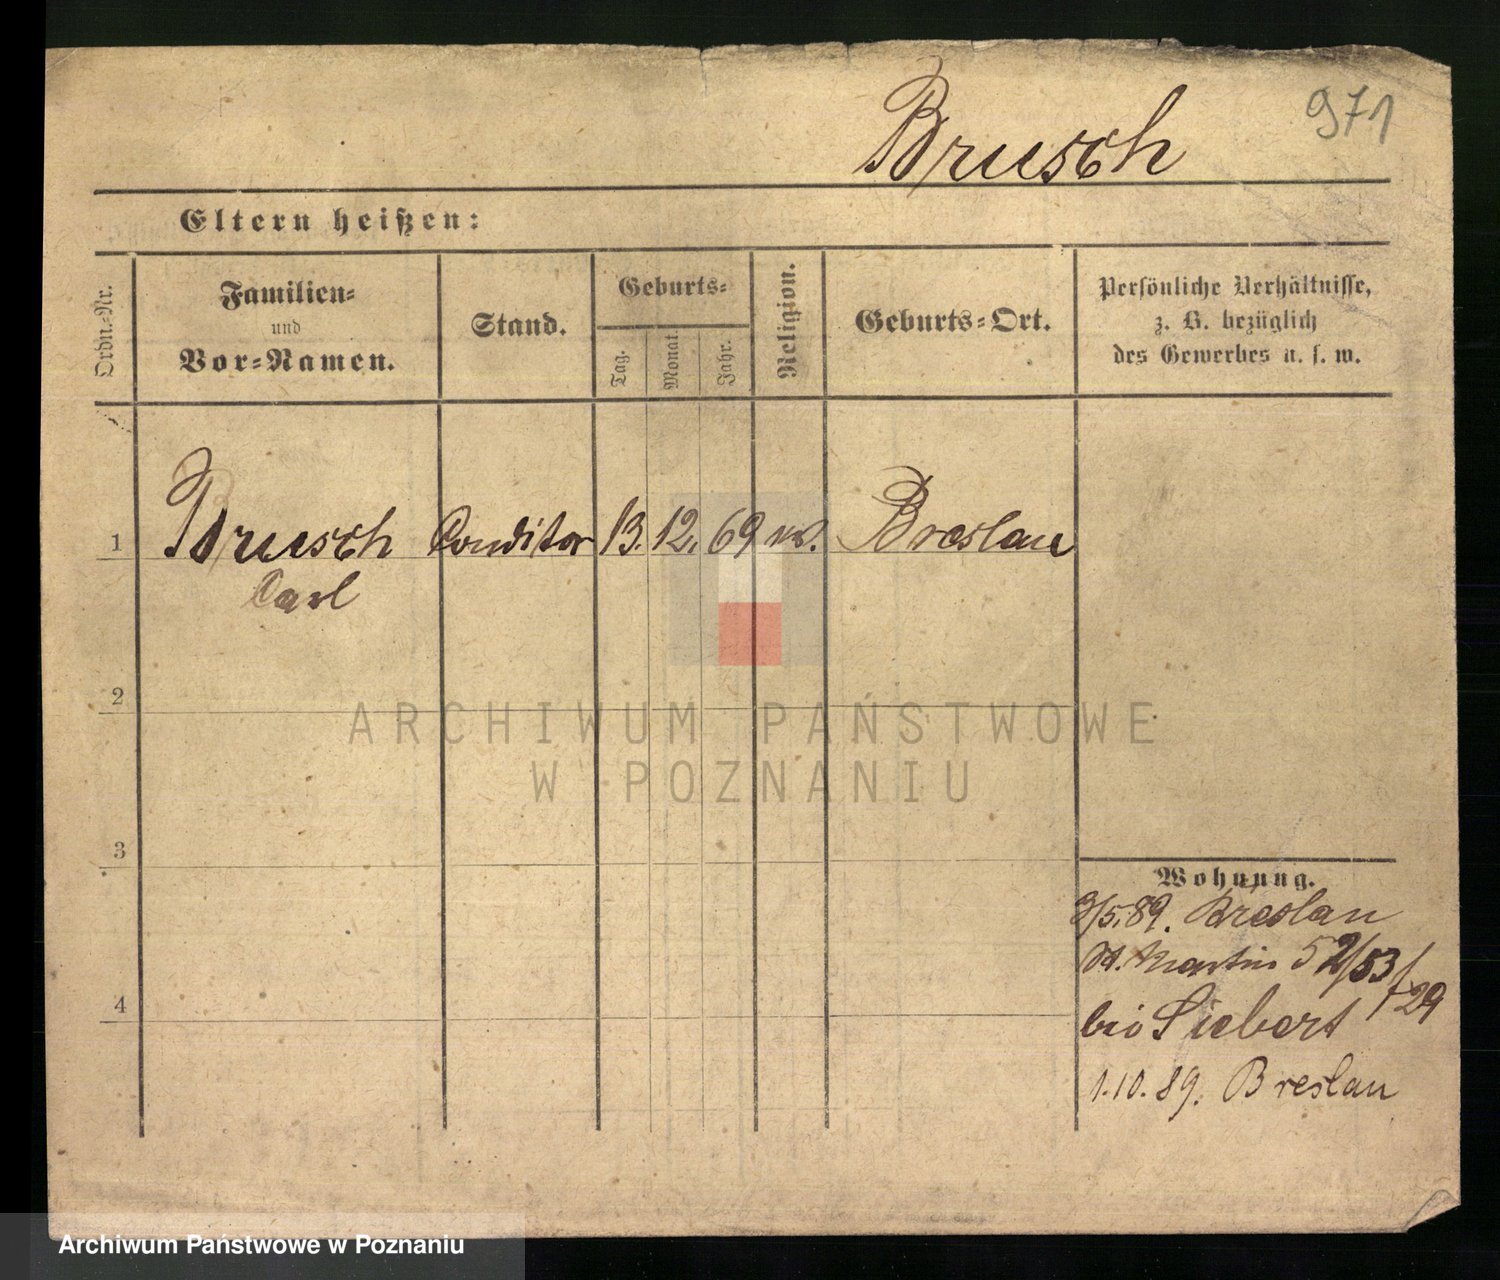 Brusch
971
Eltern heißen:
Ordn.-Nr.
Familien-
und
Vor-Namen.
Stand.
Geburts-
Tag.
Monat
Jahr.
Religion.
Geburts-Ort.
Persönliche Verhältnisse,
z. B. bezüglich
des Gewerbes u. s. w.
1 Brusch Conditor 13. 12. 69 Breslau
Carl
2
3
4
Wohnung.
/5.89. Breslau
St. Martin 52/53/
29
bei Siebert
1.10.89. Breslau
ARCHIWUM PAŃSTWOWE
W POZNANIU
Archiwum Państwowe w Poznaniu